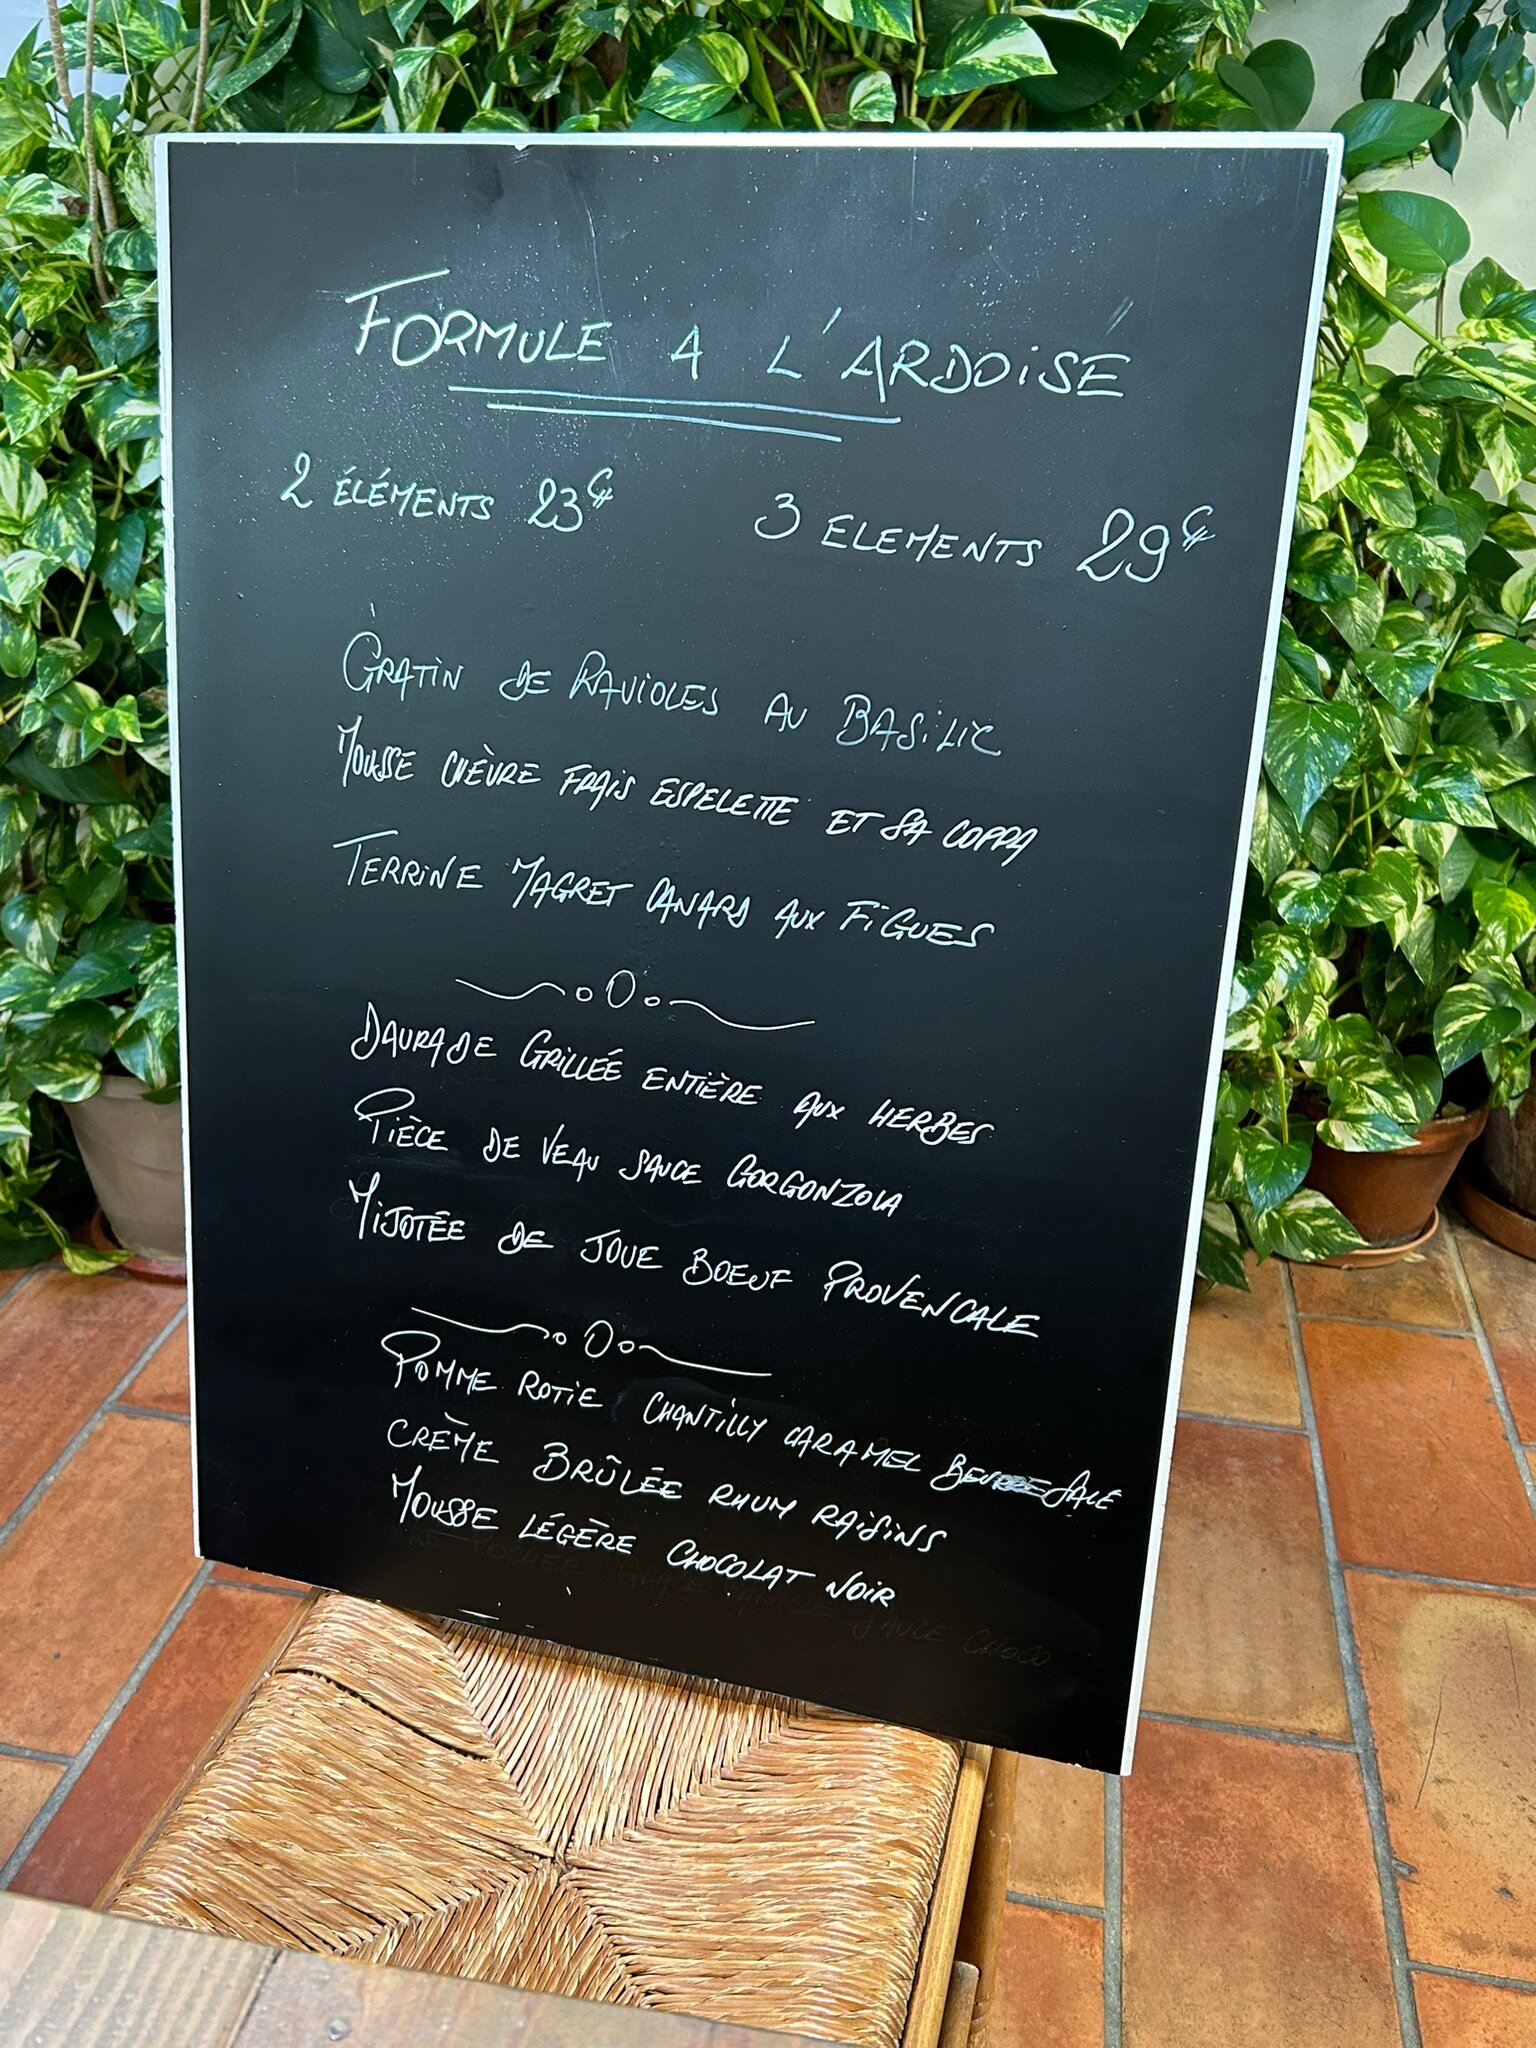 FORMULE A L'ARDOISE
2 ÉLÉMENTS 23€ 3 ELEMENTS 29€
GRATIN DE RAVIOLES AU BASILIC
MOUSSE CHÈVRE FRAIS ESPELETTE ET SA COPPA
TERRINE MAGRET CANARD AUX FIGUES
DAURADE GRILLÉE ENTIÈRE AUX HERBES
PIÈCE DE VEAU SAUCE GORGONZOLA
MIJOTÉE DE JOUE BOEUF PROVENCALE
POMME ROTIE CHANTILLY CARAMEL BEURRE SALÉ
CRÈME BRÛLÉE RHUM RAISINS
MOUSSE LÉGÈRE CHOCOLAT NOIR
SAUCE CHOCO